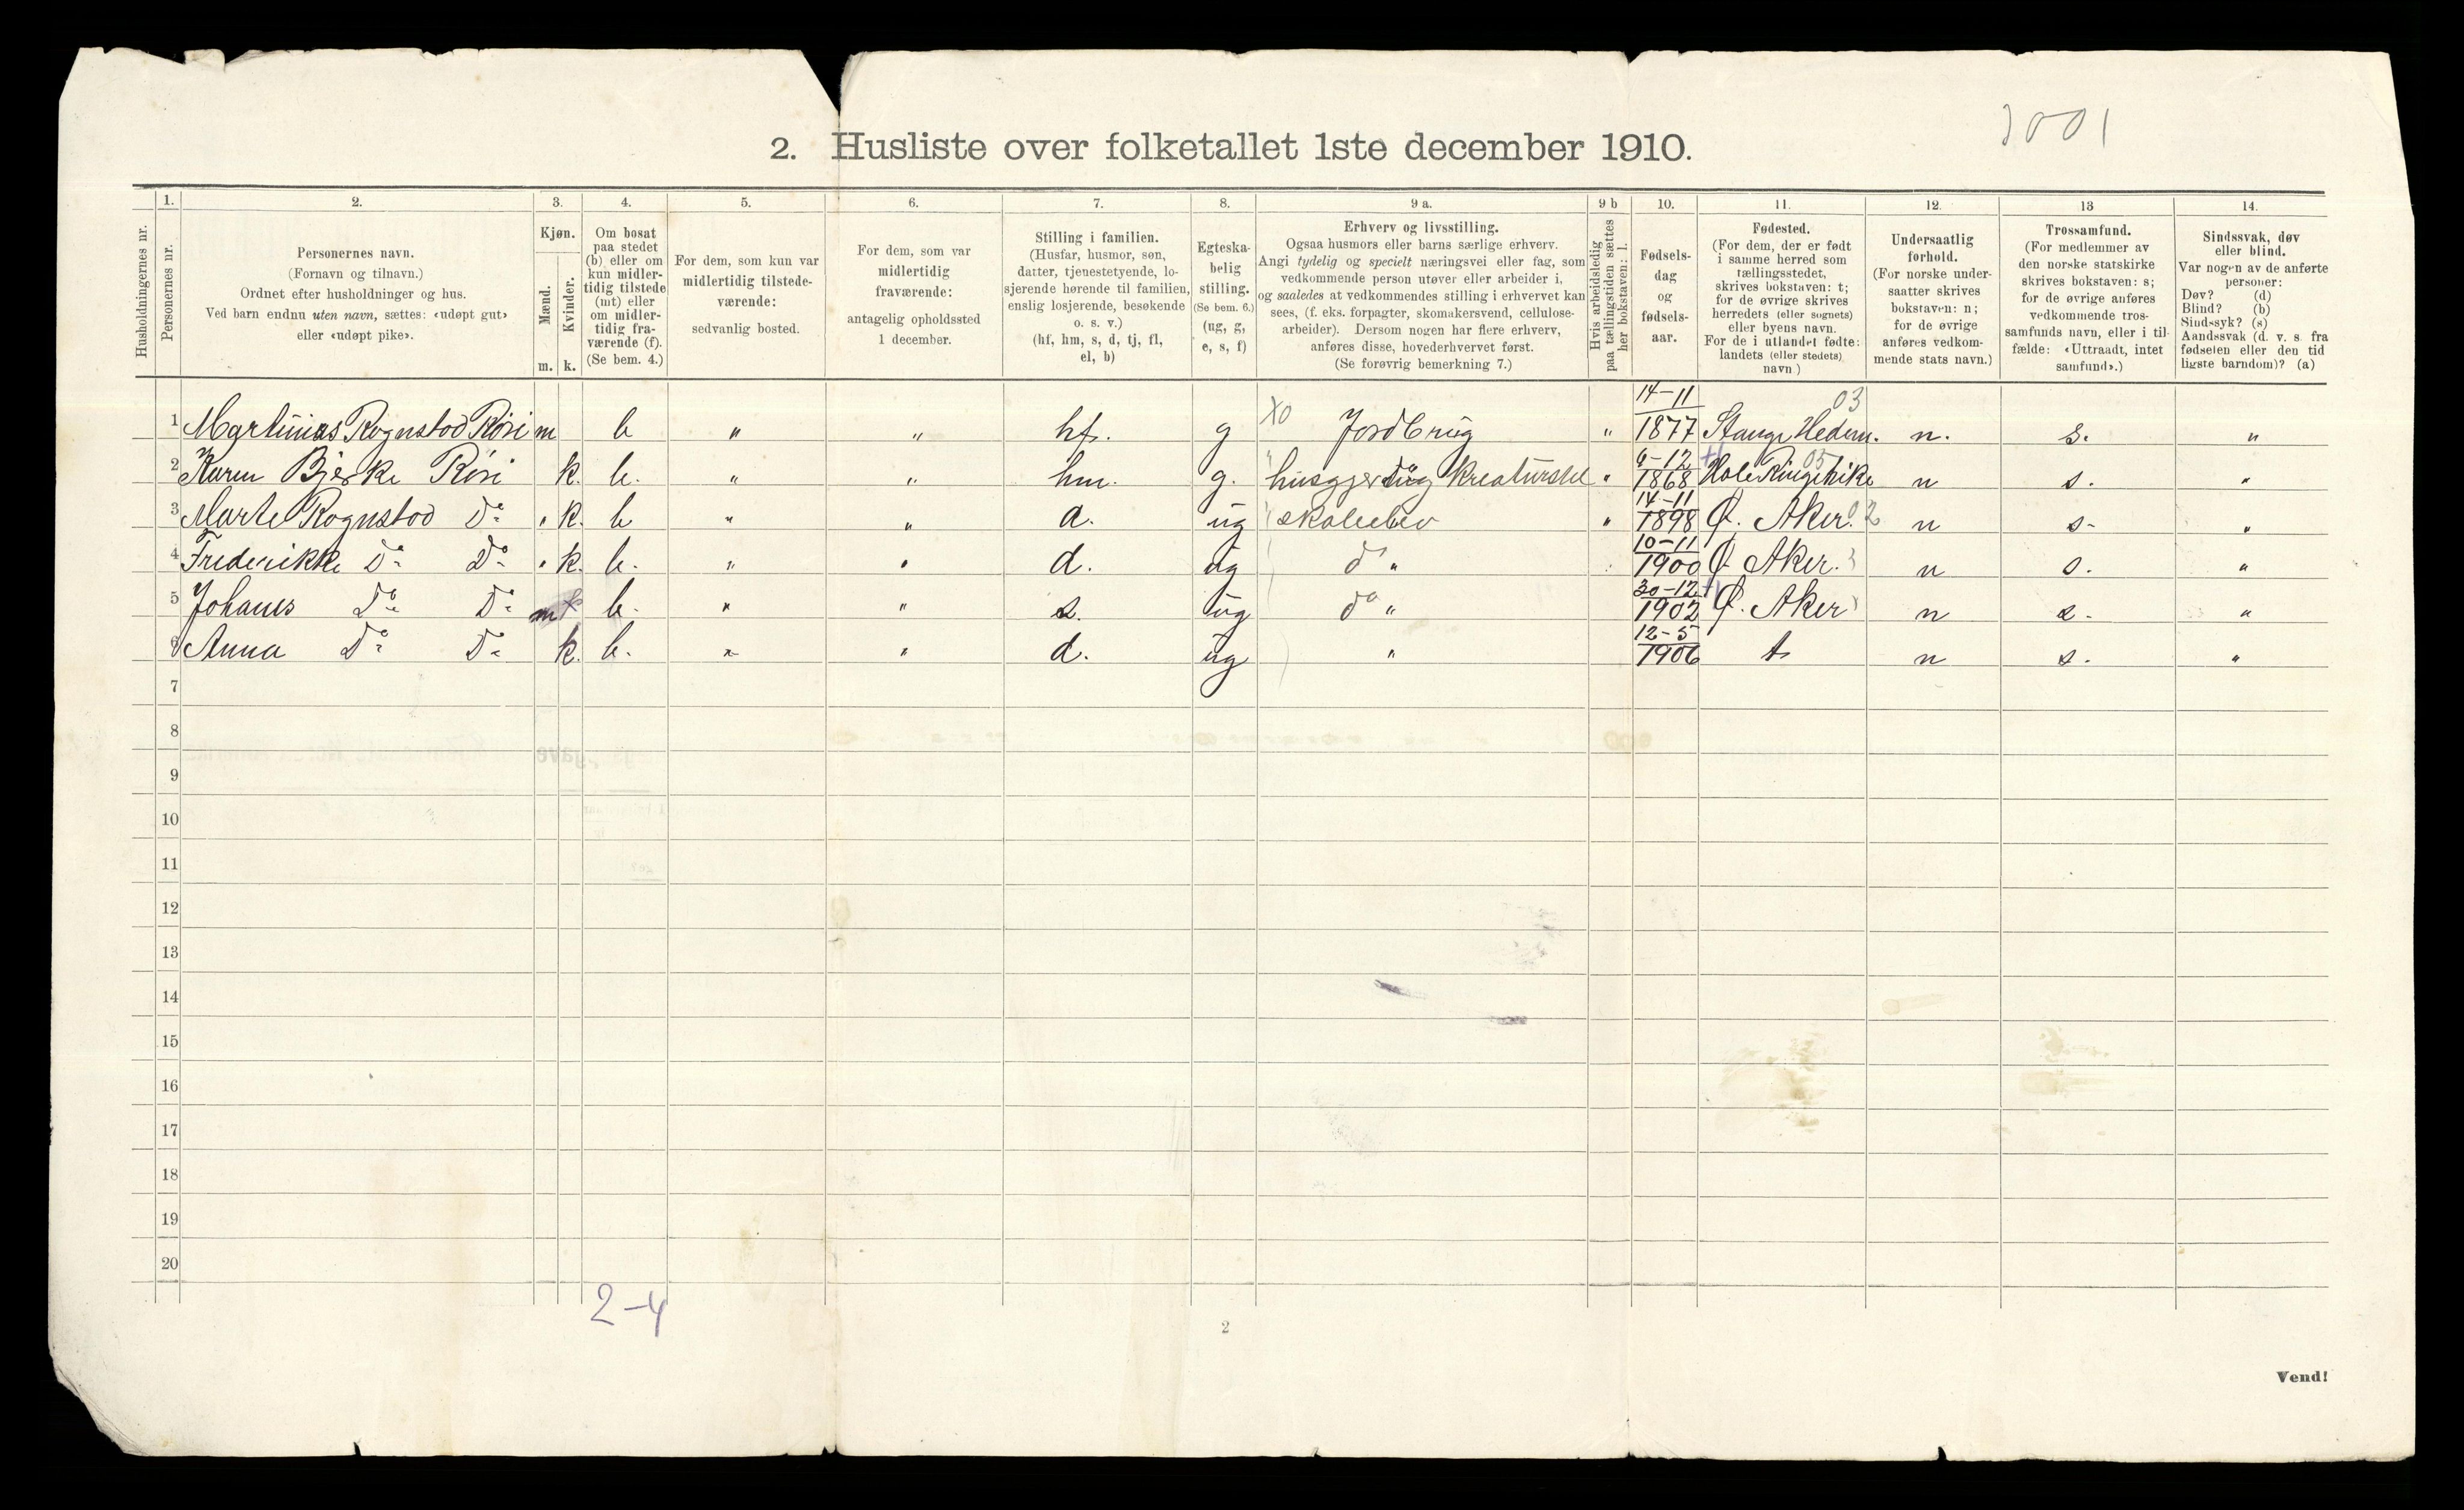 2. Husliste over folketallet 1ste december 1910.
1. 2. 3. 4. 5. 6. 7. 8. 9 a. 9 b 10. 11. 12. 13 14.
Husholdningernes nr.
Personernes nr.
Personernes navn.
(Fornavn og tilnavn.)
Ordnet efter husholdninger og hus.
Ved barn endnu uten navn, sættes: «udøpt gut»
eller «udøpt pike».
Kjøn.
Mænd.
Kvinder.
m. k.
Om bosat
paa stedet
(b) eller om
kun midler-
tidig tilstede
(mt) eller
om midler-
tidig fra-
værende (f).
(Se bem. 4.)
For dem, som kun var
midlertidig tilstede-
værende:
sedvanlig bosted.
For dem, som var
midlertidig
fraværende:
antagelig opholdssted
1 december.
Stilling i familien.
(Husfar, husmor, søn,
datter, tjenestetyende, lo-
sjerende hørende til familien,
enslig losjerende, besøkende
o. s. v.)
(hf, hm, s, d, tj, fl,
el, b)
Egteska-
belig
stilling.
(Se bem. 6.)
(ug, g,
e, s, f)
Erhverv og livsstilling.
Ogsaa husmors eller barns særlige erhverv.
Angi tydelig og specielt næringsvei eller fag, som
vedkommende person utøver eller arbeider i,
og saaledes at vedkommendes stilling i erhvervet kan
sees, (f. eks. forpagter, skomakersvend, cellulose-
arbeider). Dersom nogen har flere erhverv,
anføres disse, hovederhvervet først.
(Se forøvrig bemerkning 7.)
Hvis arbeidsledig
paa tællingstiden sættes
her bokstaven: l.
Fødsels-
dag
og
fødsels-
aar.
Fødested.
(For dem, der er født
i samme herred som
tællingsstedet,
skrives bokstaven: t;
for de øvrige skrives
herredets (eller sognets)
eller byens navn.
For de i utlandet fødte:
landets (eller stedets)
navn)
Undersaatlig
forhold.
(For norske under-
saatter skrives
bokstaven: n;
for de øvrige
anføres vedkom-
mende stats navn.)
Trossamfund.
(For medlemmer av
den norske statskirke
skrives bokstaven: s;
for de øvrige anføres
vedkommende tros-
samfunds navn, eller i til-
fælde: «Uttraadt, intet
samfund».)
Sindssvak, døv
eller blind.
Var nogen av de anførte
personer:
Døv? (d)
Blind? (b)
Sindssyk? (s)
Aandssvak (d. v. s. fra
fødselen eller den tid
ligste barndom)? (a)
1 Martinius Rognstod Røsi m b " " hf. g Jordbrug " 14-11 1877 Stange Hedem. 03 n. s. "
2 Karen Bjerke Røsi k. b. " " hm. g. husgjerding " 6-12 1868 Hole Ringerike 05 n s. "
3 Marte Rognstod Do " k. b " " d. ug skoleelev " 14-11 1898 Ø. Aker. n s- "
4 Frederikke Do Do " k. b. " " d. ug do " 10-11 1900 Ø Aker. n s. "
5 Johanes Do Do m b. " " s. ug do " 30-12 1902 Ø. Aker n s- "
6 Anna Do Do k. b. " " d. ug " 12-5 1906 t n s. "
7
8
9
10
11
12
13
14
15
16
17
18
19
20
2-4
2
Vend!